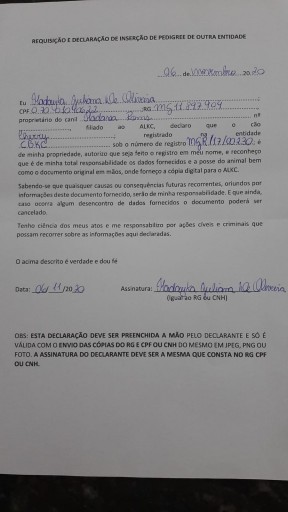 REQUISIÇÃO E DECLARAÇÃO DE INSERÇÃO DE PEDIGREE DE OUTRA ENTIDADE
06 de novembro 2020
Eu Juliana De Oliveira
CPF RG MG11897909
proprietário do canil nº
filiado ao ALKC, declaro que o cão
Cherry, registrado na entidade
CBKC sob o número de registro e
de minha propriedade, autorizo que seja feito o registro em meu nome, e reconheço
que é de minha total responsabilidade os dados fornecidos e a posse do animal bem
como o documento original em mãos, onde forneço a cópia digital para o ALKC.
Sabendo-se que quaisquer causas ou consequências futuras recorrentes, oriundos por
informações deste documento fornecido, serão de minha responsabilidade. E que ainda,
caso ocorra algum desencontro de dados fornecidos o documento poderá ser
cancelado.
Tenho ciência dos meus atos e me responsabilizo por ações cíveis e criminais que
possam recorrer sobre as informações aqui declaradas.
O acima descrito é verdade e dou fé
Data: 06/11/2020 Assinatura: Juliana De Oliveira
(Igual ao RG ou CNH)
OBS: ESTA DECLARAÇÃO DEVE SER PREENCHIDA A MÃO PELO DECLARANTE E SÓ É
VÁLIDA COM O ENVIO DAS CÓPIAS DO RG E CPF OU CNH DO MESMO EM JPEG, PNG OU
FOTO. A ASSINATURA DO DECLARANTE DEVE SER A MESMA QUE CONSTA NO RG CPF
OU CNH.